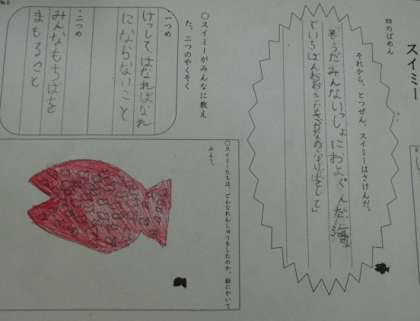 スイミー
四のばめん
それから、とつぜん、スイミーはさけんだ。
そうだみんないっしょにおよぐんだ
○スイミーがみんなに教え
た、二つのやくそく
一つめ
けっしてはなればなれ
にならないこと
二つめ
みんなもちばを
まもること
○スイミーたちは、どんなれんしゅうをしたのか、絵にかいて
みよう。